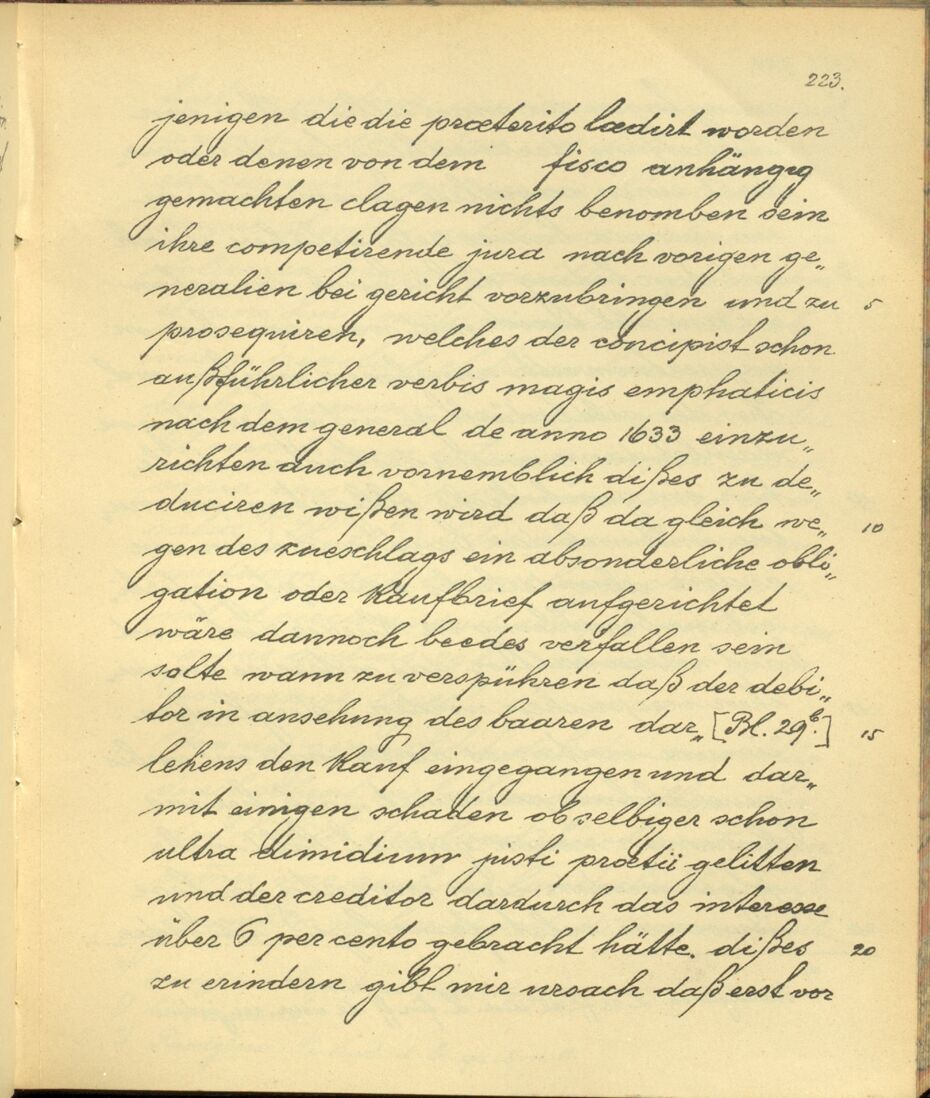 223.
jenigen die die præterito lædirt worden
oder denen von dem fisco anhängig
gemachten clagen nichts benomben sein
ihre competirende jura nach vorigen ge„
neralien bei gericht vorzubringen und zu 5
prosequiren, welches der concipist schon
außführlicher verbis magis emphaticis
nach dem general de anno 1633 einzu„
richten auch vornemblich dißes zu de„
duciren wißen wird daß da gleich we„ 10
gen des zueschlags ein absonderliche obli„
gation oder Kaufbrief aufgerichtet
wäre dannoch beedes verfallen sein
solte wann zu verspühren daß der debi„
tor in ansehung des baaren dar„ [Bl. 29b.] 15
lehens den Kauf eingegangen und dar„
mit einigen schaden ob selbiger schon
ultra dimidium justi prætii gelitten
und der creditor dardurch das interesse
über 6 per cento gebracht hätte. dißes 20
zu erindern gibt mir ursach daß erst vor